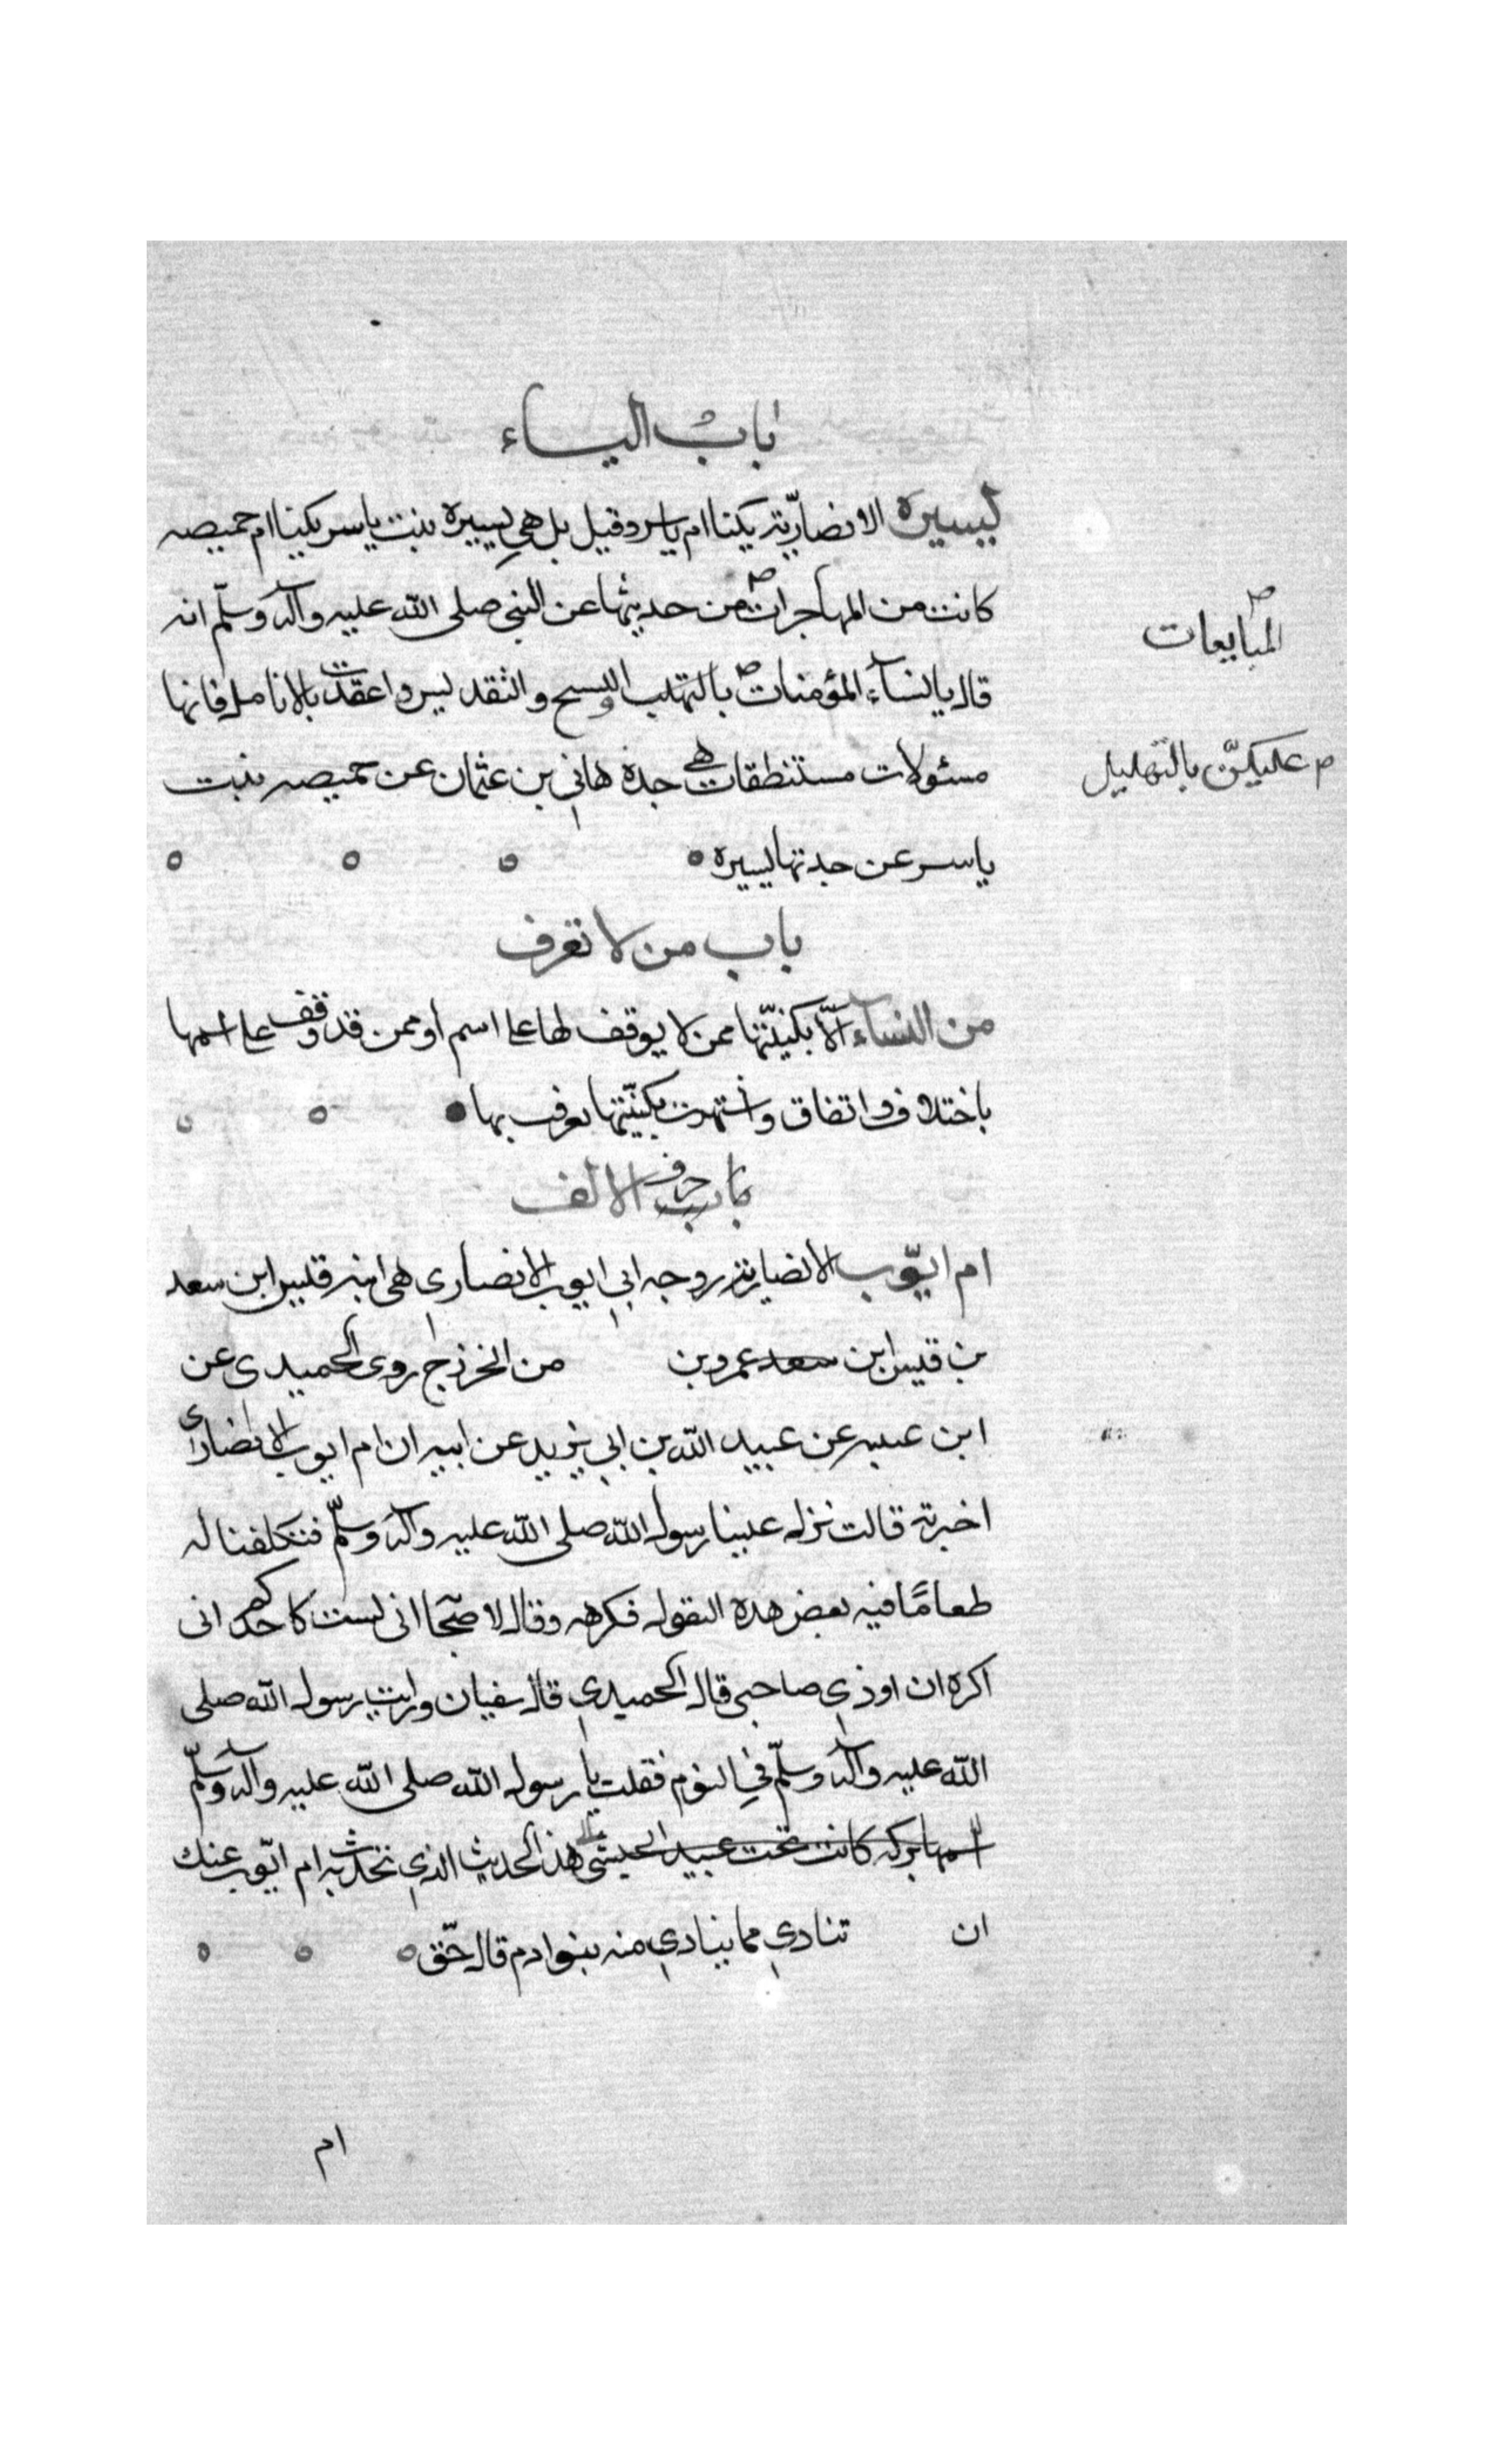 باب الياء
يسيرة الانصارية يكنا ام ياسر وقيل بل هي يسيرة بنت ياسر يكنا ام حميصه
كانت من المهاجرات من حديثها عن النبي صلى الله عليه وآله وسلّم انه
المبايعات
قال يا نسآء المؤمنات بالتهليب والتسبيح والتقديس واعقدن بالانامل فانها
عليكنّ بالتهليل
مسئولات مستنطقات هي جدة هاني بن عثمان عن حميصه بنت
ياسر عن جدتها يسيرة
باب من لا تعرف
من النسآء الّا بكنيّتها ممن لا يوقف لها على اسم او ممن قد وقف على اسمها
باختلاف او اتفاق واشتهرت بكنيّتها تعرف بها
باب حرف الالف
ام ايّوب الانصارية زوجه ابي ايوب الانصاري هي ابنه قيس ابن سعد
بن قيس ابن سعد عمرو بن من الخزرج روى الحميدي عن
ابن عيينه عن عبيد الله بن ابي يزيد عن ابيه ان ام ايوب الانصاري
اخبرته قالت نزل علينا رسول الله صلى الله عليه وآله وسلّم فتكلفنا له
طعامًا فيه بعض هذه البقول فكرهه وقال لاصحابه انى لست كاحدكم انى
اكره ان اوذي صاحبى قال الحميدي قال سفيان ورايت رسول الله صلى
الله عليه وآله وسلّم في النوم فقلت يا رسول الله صلى الله عليه وآله وسلّم
اسمها بركه كانت تحت عبيد الحبشى هذا الحديث الذي تحدث به ام ايّوب عنك
ان تنادي مما ينادي منه بنوا ادم قال حّق
ام